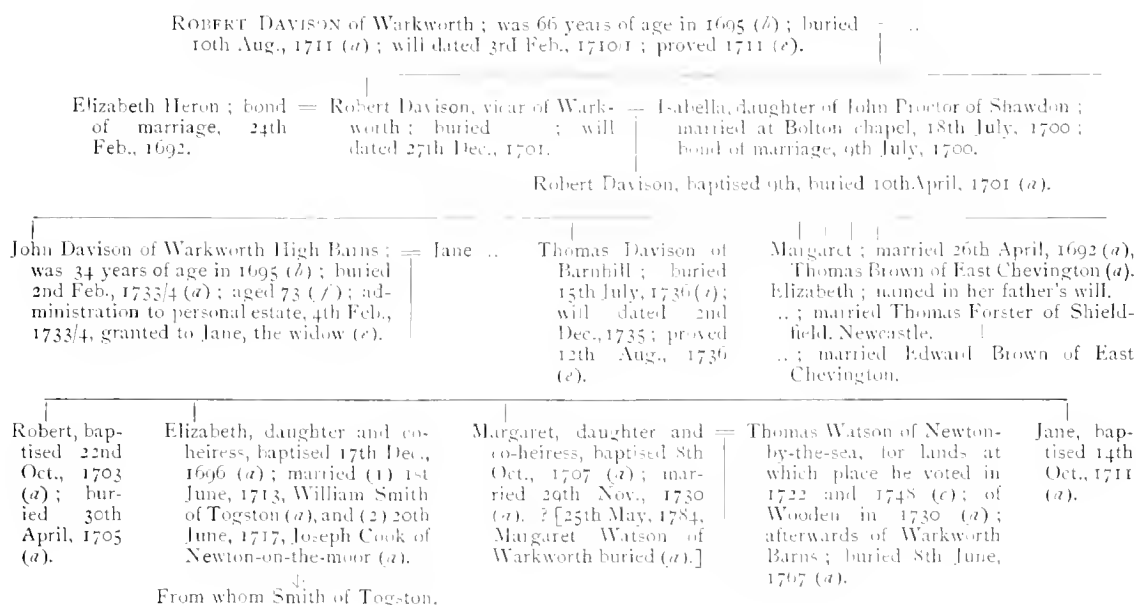 ROBERT DAVISON of Warkworth ; was 66 years of age in 1695 (h) ; buried
10th Aug., 1711 (a) ; will dated 3rd Feb., 1710/1 ; proved 1711 (e).
..
Elizabeth Heron ; bond
of marriage, 24th
Feb., 1692.
=
Robert Davison, vicar of Wark-
worth ; buried ; will
dated 27th Dec., 1701.
=
Isabella, daughter of John Proctor of Shawdon ;
married at Bolton chapel, 18th July, 1700 ;
bond of marriage, 9th July, 1700.
Robert Davison, baptised 9th, buried 10th April, 1701 (a).
John Davison of Warkworth High Barns ;
was 34 years of age in 1695 (h) ; buried
2nd Feb., 1733/4 (a) ; aged 73 (f) ; ad-
ministration to personal estate, 4th Feb.,
1733/4, granted to Jane, the widow (e).
=
Jane ..
Thomas Davison of
Barnhill ; buried
15th July, 1736 (e) ;
will dated 2nd
Dec., 1735 ; proved
12th Aug., 1736
(e).
Margaret ; married 26th April, 1692 (a),
Thomas Brown of East Chevington (a).
Elizabeth ; named in her father's will.
.. ; married Thomas Forster of Shield-
field, Newcastle.
.. ; married Edward Brown of East
Chevington.
Robert, bap-
tised 22nd
Oct., 1703
(a) ; bur-
ied 30th
April, 1705
(a).
Elizabeth, daughter and co-
heiress, baptised 17th Dec.,
1696 (a) ; married (1) 1st
June, 1713, William Smith
of Togston (a), and (2) 20th
June, 1717, Joseph Cook of
Newton-on-the-moor (a).
From whom Smith of Togston.
Margaret, daughter and
co-heiress, baptised 8th
Oct., 1707 (a) ; mar-
ried 29th Nov., 1730
(a). ? [25th May, 1784,
Margaret Watson of
Warkworth buried (a).]
=
Thomas Watson of Newton-
by-the-sea, for lands at
which place he voted in
1722 and 1748 (c) ; of
Wooden in 1730 (a) ;
afterwards of Warkworth
Barns ; buried 8th June,
1767 (a).
Jane, bap-
tised 14th
Oct., 1711
(a).